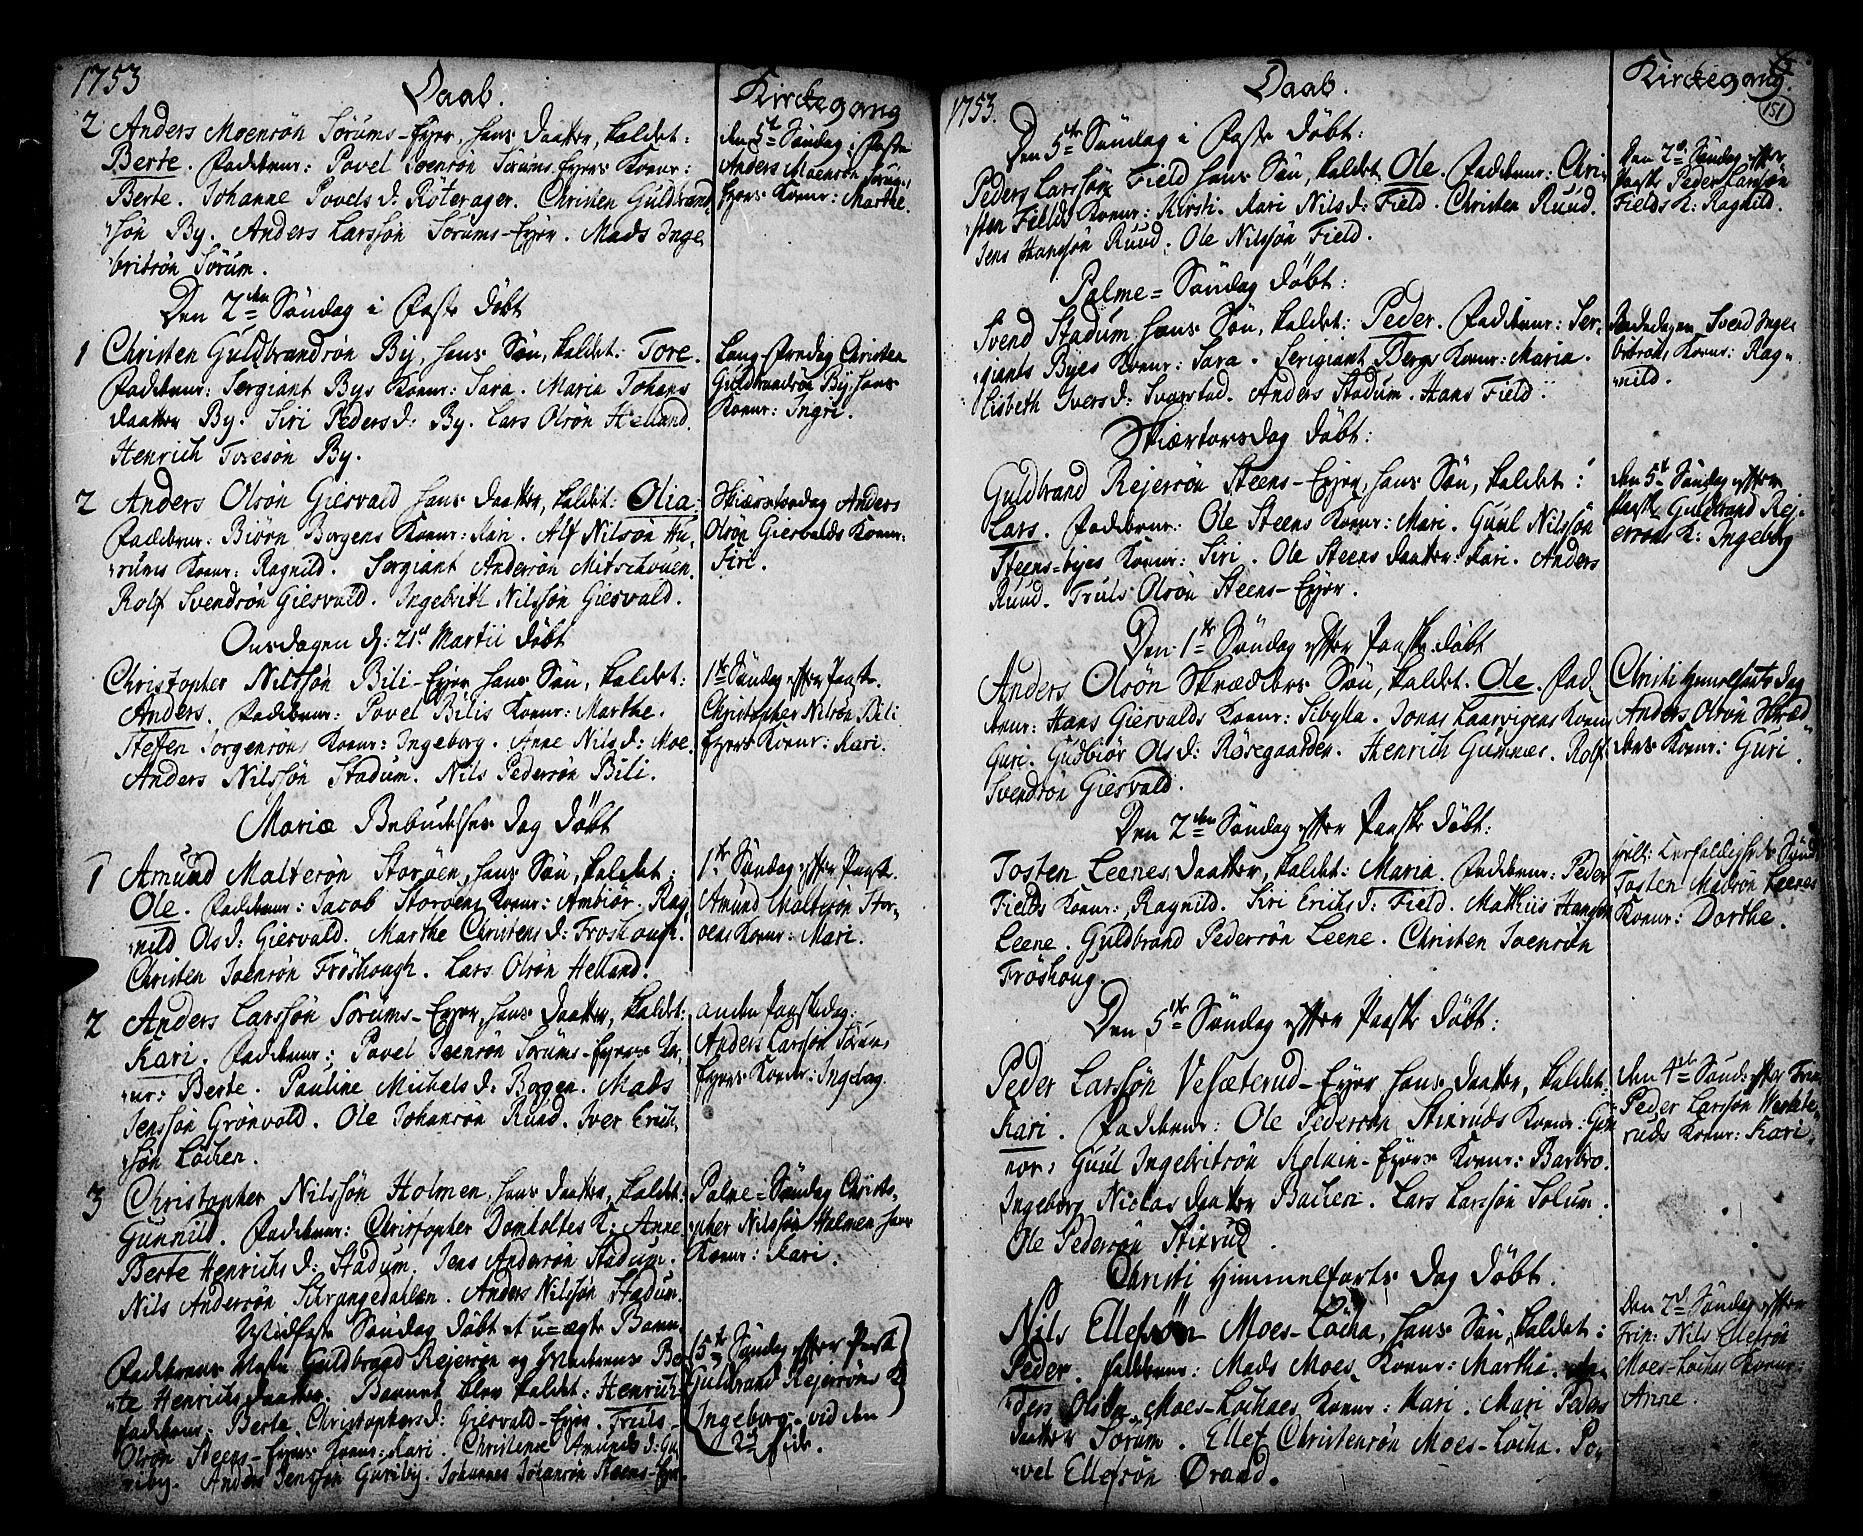 1753
Daab.
Kirckegang
2 Anders Moensøn Sørums-Eyer, hans Daatter, kaldet:
Berte. Fadderne: Povel Joensøn Sørums-Eyers Konne:
Berte. Johanne Povels D: Röterager. Christen Guldbrand
søn By. Anders Larssøn Sørums-Eyer. Mads Inge
britsøn Sørum.
den 5te Søndag i Faste
Anders Moensøn Sørums
Eyers Konne: Marthe.
Den 2den Søndag i Faste døbt
1 Christen Guldbrandsøn By, hans Søn, kaldet: Tore.
Fadderne: Sergiant Bys Konne: Sara. Maria Johans
daatter By. Siri Peders D: By. Lars Olsøn Helland.
Henrich Toresøn By.
Lang-fredag Christen
Guldbrandsøn By, hans
Konne: Ingri.
2 Anders Olsøn Giesvald hans Daatter, kaldet: Olia.
Fadderne: Biørn Borgens Konne: Kari. Alf Nilsøn Hu-
rums Konne: Ragnild. Sergiant Andersøn Mitschouen.
Rolf Svendsøn Giesvald. Ingebrit Nilssøn Giesvald.
Skiærtorsdag Anders
Olsøn Giesvalds Konne:
Siri.
Onsdagen d: 21de Martii døbt
Christopher Nilssøn Bili-Eyer hans Søn, kaldet:
Anders. Fadderne: Povel Bilis Konne: Marthe.
Steffen Jørgensøns Konne: Ingeborg. Anne Nils D: Moe.
Anders Nilssøn Stadum. Nils Pedersøn Bili.
1te Søndag efter Paaske.
Christopher Nilsøn Bili
Eyers Konne: Kari.
Mariæ Bebudelses Dag døbt
1 Amund Maltesøn Storøen, hans Søn, kaldet:
Ole. Fadderne: Jacob Storøens Konne: Ambiør. Rag-
nild Ols D: Giesvald. Marthe Christens D: Frøshough.
Christen Joensøn Frøshough. Lars Olsøn Helland.
1te Søndag efter Paaske.
Amund Maltesøn Stor-
øens Konne: Mari.
2 Anders Larssøn Sørums-Eyer, hans Daatter, kaldet:
Kari. Fadderne: Povel Joensøn Sørums-Eyers Kon-
ne: Berte. Pauline Michels D: Borgen. Mads
Jenssøn Grønvold. Ole Johansøn Ruud. Iver Erich-
søn Løchen.
anden Paaskedag:
Anders Larssøn Sørums
Eyers Konne: Ingeborg.
3 Christopher Nilssøn Holmen, hans Daatter, kaldet:
Gunnild. Fadderne: Christopher Domholtes K: Anne
Berte Henrichs D: Stadum. Jens Andersøn Stadum.
Nils Andersøn Schrangedahlen. Anders Nilssøn Stadum.
Palme-Søndag Christo-
pher Nilssøn Holmen, hans
Konne: Kari.
Midfaste Søndag døbt et u-ægte Barn
Guldbrand Rejersøn og Ber
te Henrichs daatter. Barnet blev kaldet: Henrich
Fadderne: Berte Christophers D: Giesvald-Eyer. Truls
Olsøn Steens-Eyers Konne: Kari. Christence Amunds D: Gu
riby. Anders Jenssøn Guriby. Johannes Johansøn Steens-Eyer.
(5te Søndag efter Paaske
Guldbrand Rejersøns K
Ingeborg - vid den
2den Side.
1753.
Daab.
Kirckegang.
151
Den 5te Søndag i Faste døbt:
Peder Larssøn Field hans Søn, kaldet Ole. Fadderne: Chri-
sten Fields Konne: Kirsti. Kari Nils D: Field. Christen Ruud.
Jens Hanssøn Ruud. Ole Nilssøn Field.
Den 2den Søndag efter
Paaske Peder Larssøn
Fields K: Ragnild.
Palme-Søndag døbt:
Svend Stadum hans Søn, kaldet: Peder. Fadderne: Ser-
giants Byes Konne: Sara. Serigiant Bergs Konne: Maria.
Lisbeth Ivers D: Svarstad. Anders Stadum. Hans Field.
Svend Inge-
britsøns Konne: Rag-
nild.
Skiærtorsdag døbt:
Guldbrand Rejersøn Steens-Eyer, hans Søn, kaldet:
Lars. Fadderne: Ole Steens Konne: Mari. Guul Nilssøn
Steens-byes Konne: Siri. Ole Steens daatter: Kari. Anders
Ruud. Truls Olsøn Steens-Eyer.
den 5te Søndag efter
Paaske Guldbrand Rej-
ersøns K: Ingeborg
Den 1te Søndag efter Paaske døbt
Anders Olsøn Skræders Søn, kaldet. Ole. Fad-
derne: Hans Giesvalds Konne: Sibylla. Jonas Laarvigens Konne
Guri. Gudbiør Ols D: Røsegaarden. Henrich Gumnæs. Rolf
Svendsøn Giesvald.
Christi Himmelfarts Dag
Anders Olsøn Skræd-
ders Konne: Guri.
Den 2den Søndag efter Paaske døbt:
Tosten Leenes Daatter, kaldet: Maria. Fadderne: Peder
Fields Konne: Ragnild. Siri Erichs D: Field. Matthis Hanssøn
Leene. Guldbrand Pedersøn Leene. Christen Joensøn
Frøshoug.
Trefoldigheds Sønd:
Tosten Madsøn Leenes
Konne: Dorthe.
Den 5te Søndag efter Paaske døbt:
Peder Larssøn Vesæterud-Eyer hans Daatter, kaldet:
Kari. Fadderne: Ole Pedersøn Stixruds Konne: Gun
nor: Guul Ingebritsøn Eyers Konne: Barbro.
Ingeborg Niclas daatter Bachen. Lars Larssøn Solum.
Ole Pedersøn Stixrud.
den 4de Sønd: efter Trin:
Peder Larssøn Vesæte-
ruds Konne: Kari.
Christi Himmelfarts Dag døbt.
Nils Ellefsøn Moes-Løcha, hans Søn, kaldet:
Peder. Fadderne: Mads Moes Konne: Martha.
Moes-Løchaes Konne: Mari. Mari Peders
daatter Sørum. Ellef Christensøn Moes-Løcha. Po-
vel Ellefsøn Øraad.
Den 2den Søndag efter
Trin: Nils Ellefsøn
Moes-Løchas Konne:
Anne.